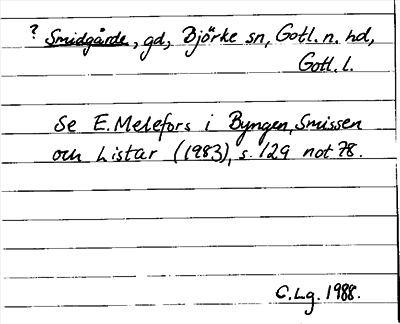 ? Smidgårde, gd, Björke sn, Gotl. n. hd,
Gotl. l.
Se E. Melefors i Byngen, Smissen
och Listar (1983), s. 129 not 78.
C. Lg. 1988.